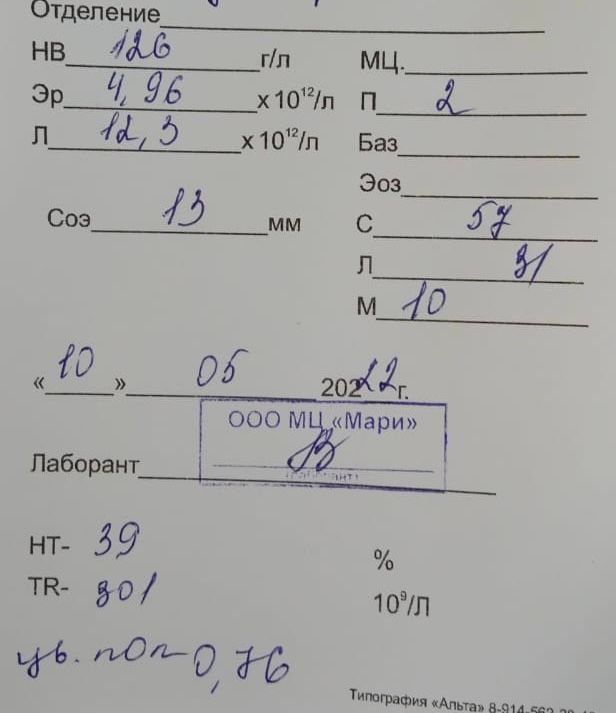 Отделение
НВ 126 г/л МЦ.
Эр 4,96 х 10¹²/л П 2
Л 12,3 х 10¹²/л Баз
Эоз
Соэ 13 мм С 57
Л 31
М 10
«10» 05 2022г.
ООО МЦ «Мари»
Лаборант
НТ- 39 %
TR- 301 10⁹/Л
цв. пок 0,76
Типография «Альта» 8-914-562